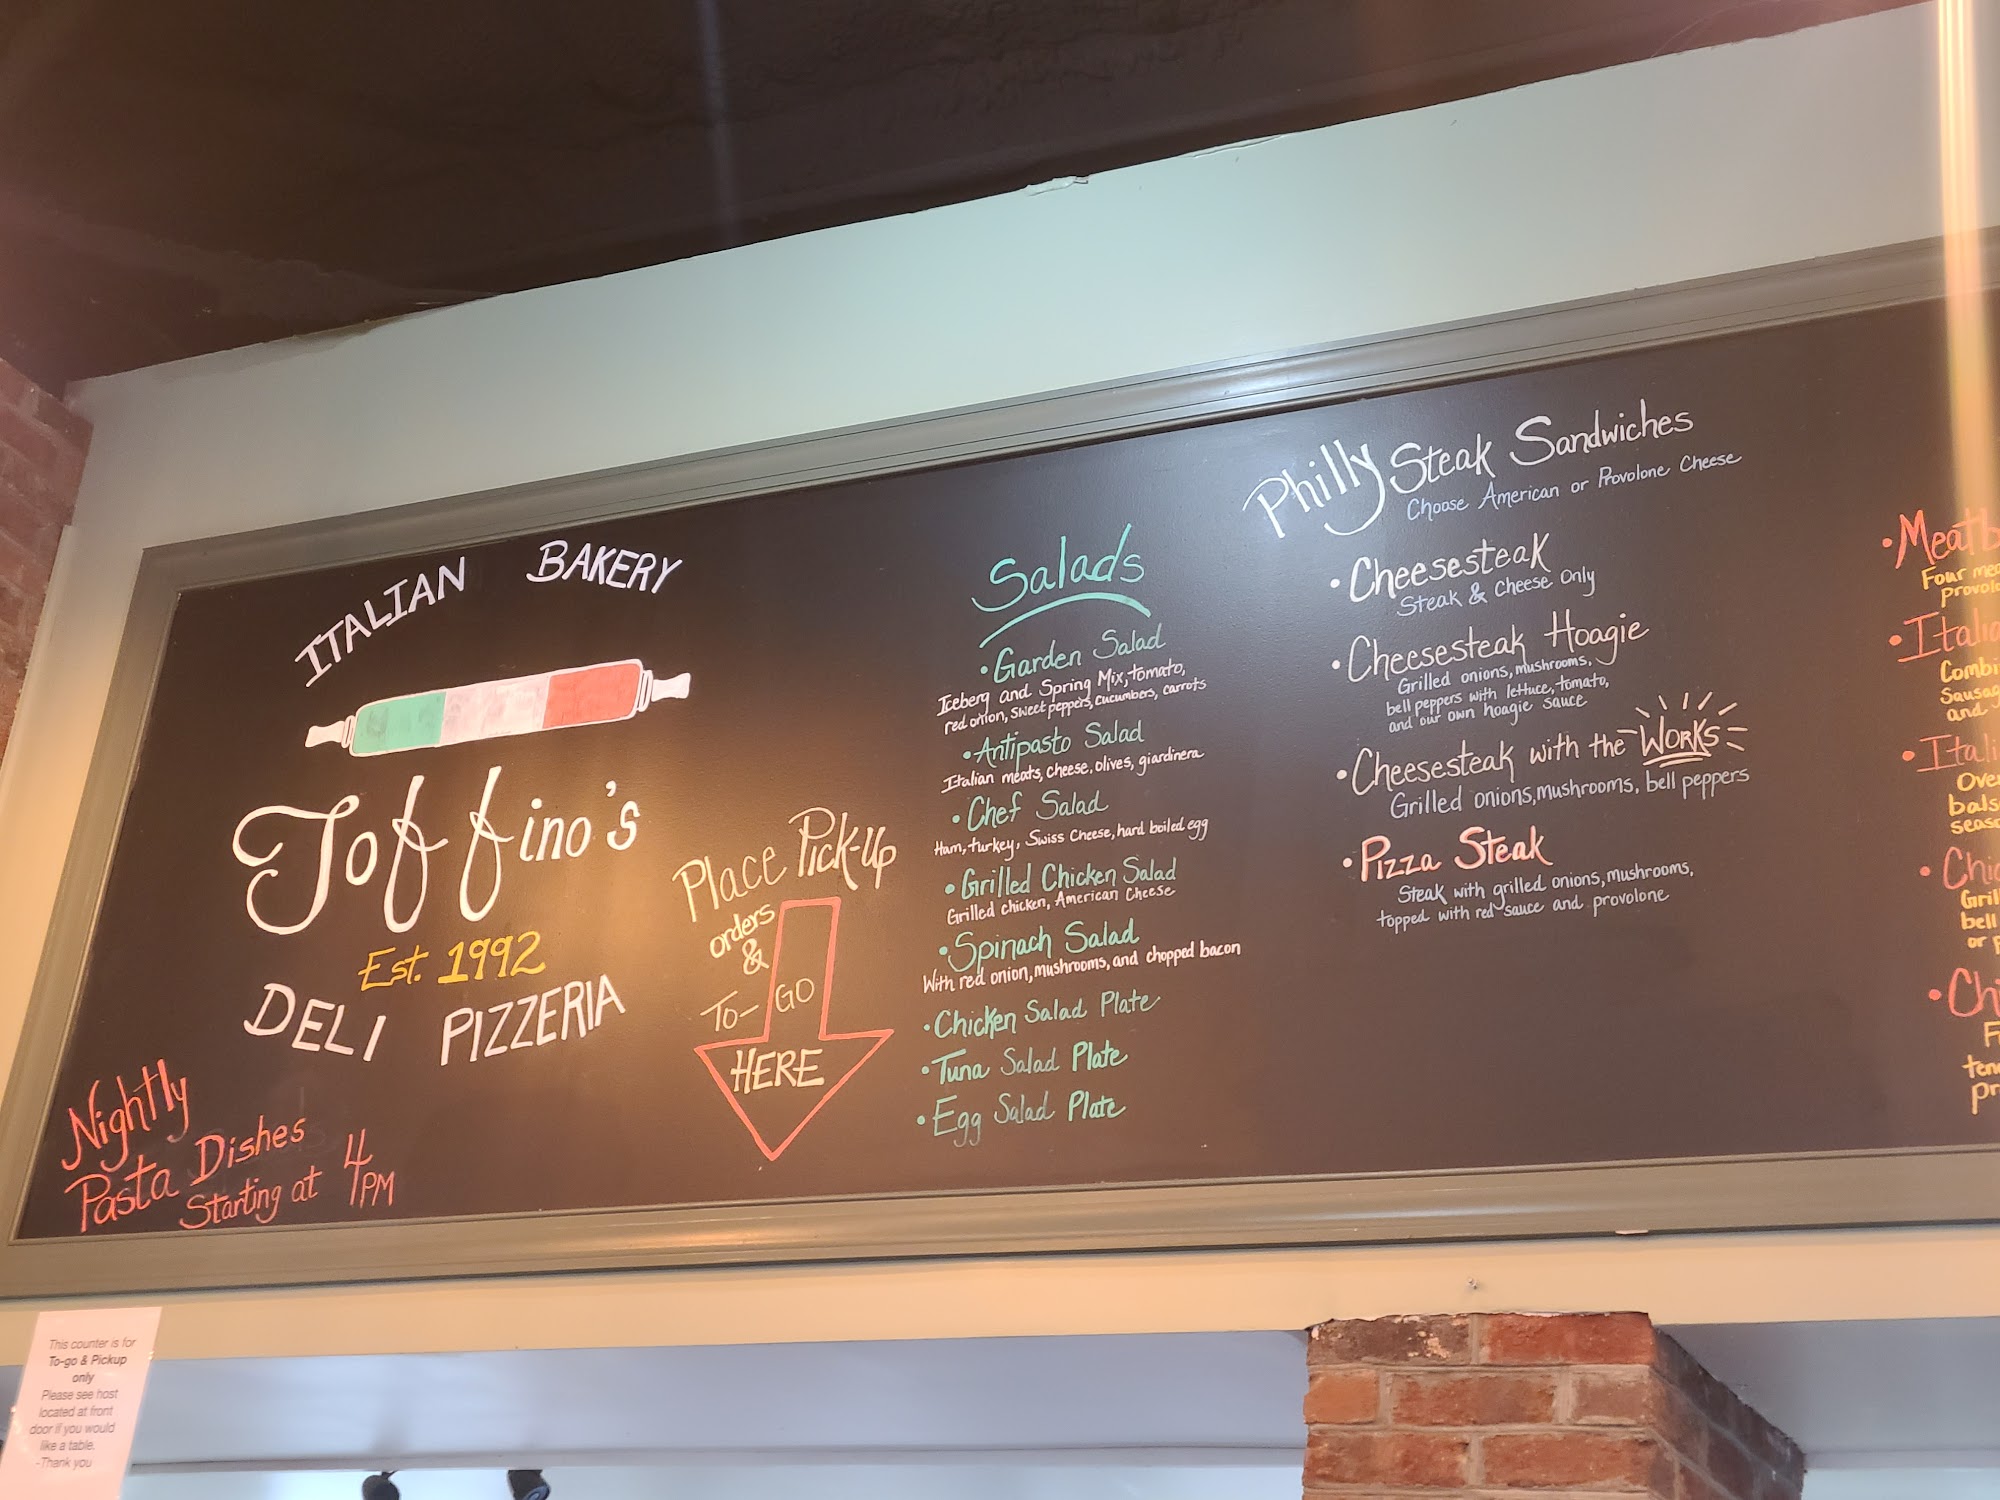 ITALIAN BAKERY
Toffino's
Est. 1992
DELI PIZZERIA
Nightly
Pasta Dishes
Starting at 4PM
Place Pick-Up
orders
&
To-GO
HERE
Salads
•Garden Salad
Iceberg and Spring Mix, tomato,
red onion, sweet peppers, cucumbers, carrots
•Antipasto Salad
Italian meats, cheese, olives, giardinera
•Chef Salad
Ham, turkey, Swiss Cheese, hard boiled egg
•Grilled Chicken Salad
Grilled chicken, American Cheese
•Spinach Salad
With red onion, mushrooms, and chopped bacon
•Chicken Salad Plate
•Tuna Salad Plate
•Egg Salad Plate
Philly Steak Sandwiches
Choose American or Provolone Cheese
•Cheesesteak
Steak & Cheese Only
•Cheesesteak Hoagie
Grilled onions, mushrooms,
bell peppers with lettuce, tomato,
and our own hoagie sauce
•Cheesesteak with the WORKS
Grilled onions, mushrooms, bell peppers
•Pizza Steak
Steak with grilled onions, mushrooms,
topped with red sauce and provolone
•Meatb
Four mea
provolo
•Italia
Combi
Sausag
and
•Itali
Over
bals
seaso
•Chic
Gril
bell
or p
•Chi
F
ten
pr
This counter is for
To-go & Pickup
only
Please see host
located at front
door if you would
like a table.
-Thank you